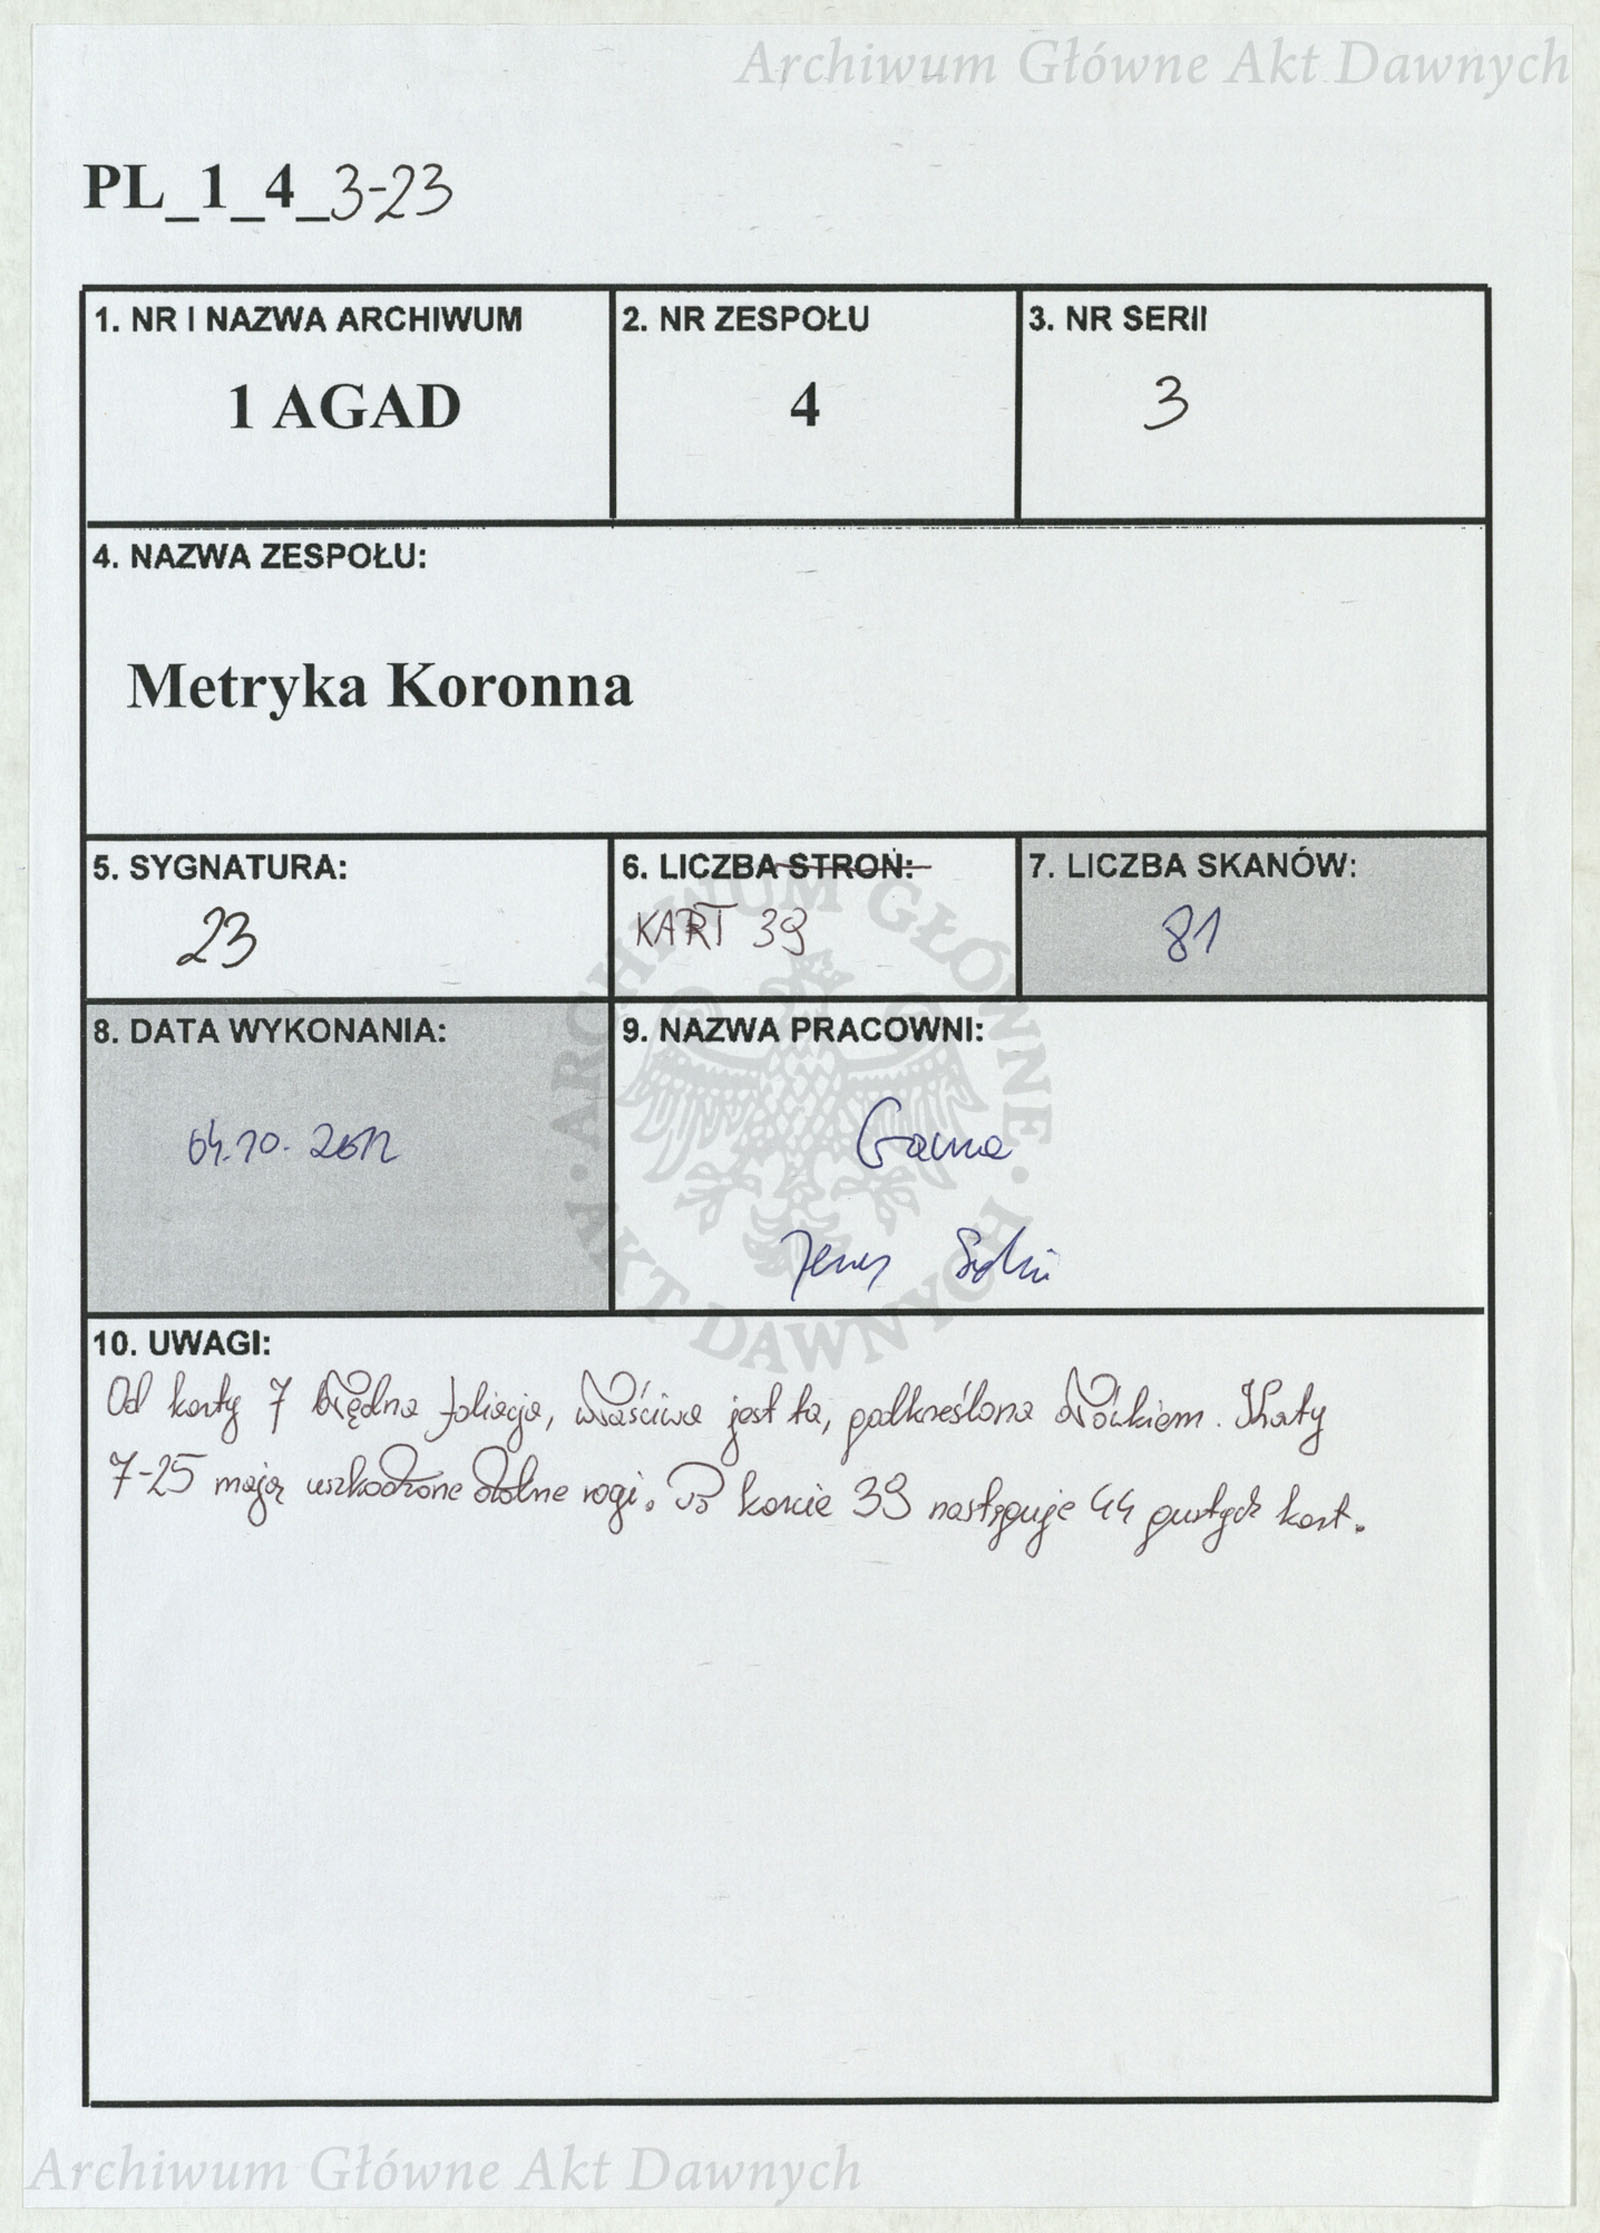 Archiwum Główne Akt Dawnych
PL_1_4_3-23
1. NR I NAZWA ARCHIWUM
1 AGAD
2. NR ZESPOŁU
4
3. NR SERII
3
4. NAZWA ZESPOŁU:
Metryka Koronna
5. SYGNATURA:
23
6. LICZBA STRON:
KART 39
7. LICZBA SKANÓW:
81
8. DATA WYKONANIA:
04.10.2012
9. NAZWA PRACOWNI:
10. UWAGI:
Od karty 7 błędna foliacja, właściwa jest ta, podkreślona ołówkiem. Karty
7-25 mają uszkodzone dolne rogi. Po karcie 39 następuje 44 pustych kart.
ARCHIWUM GŁÓWNE · AKT DAWNYCH ·
Archiwum Główne Akt Dawnych